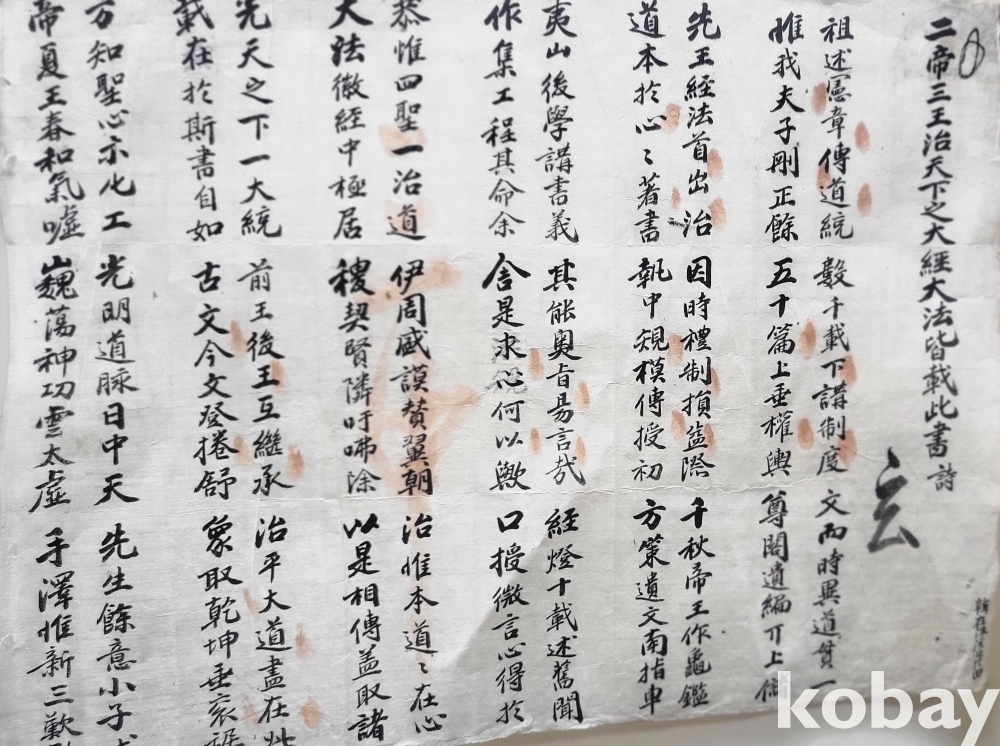 二帝三王治天下之大經大法皆載此書 詩
玄
祖述憲章傳道統 數千載下講制度 文而時異道貫一
惟我夫子剛正餘 五十篇上垂權輿 尊閣遺編丌上
先王經法首出治 因時禮制損益際 千秋帝王作龜鑑
道本於心〻著書 執中規模傳授初 方策遺文南指車
夷山後學講書義 其能奧旨易言哉 經燈十載述舊聞
作集工程其命余 舍是求心何以歟 口授微言心得於
恭惟四聖一治道 伊周盛謨贊翼朝 治惟本道〻在心
大法微經中極居 稷契賢隣吁咈除 以是相傳盖取諸
先天之下一大統 前王後王互繼承 治平大道盡在此
載在於斯書自如 古文今文登捲舒 象取乾坤垂衣裾
方知聖心示化工 光明道脉日中天 先生餘意小子
帝夏王春和氣噓 巍蕩神功雲太虛 手澤惟新三歎
kobay